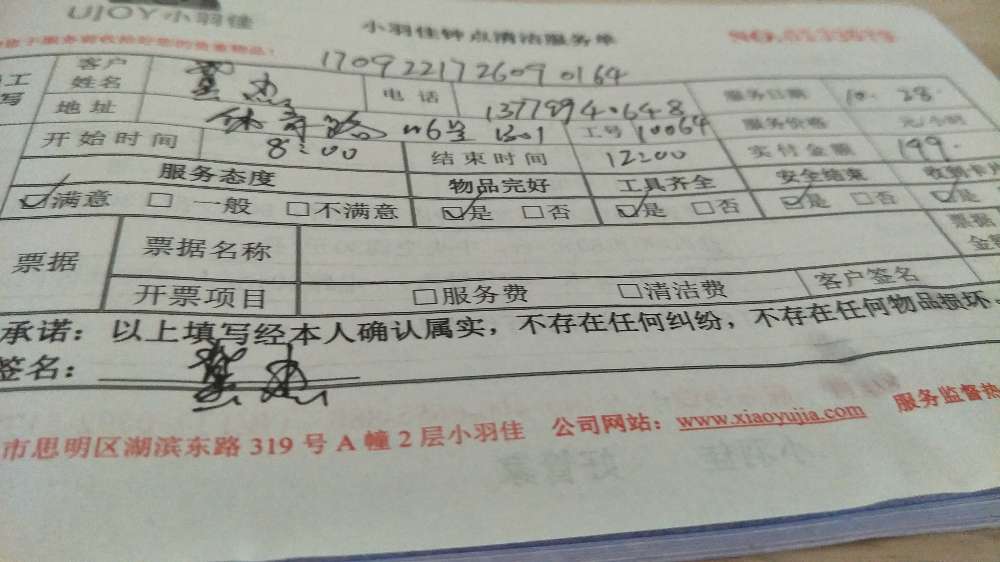 UJOY小羽佳
小羽佳钟点清洁服务单
170922172609 0164
客户姓名 电话 服务日期 10.28.
地址 116号 1301 工号 10064 服务价格 元/小时
开始时间 8:00 结束时间 12:00 实付金额 199.
服务态度 物品完好 工具齐全 安全结束
☑满意 □一般 □不满意 ☑是 □否 ☑是 □否 ☑是 □否 ☑是
票据 票据名称 票据
开票项目 □服务费 □清洁费 客户签名
承诺：以上填写经本人确认属实，不存在任何纠纷，不存在任何物品损坏
签名：
市思明区湖滨东路 319 号 A 幢 2 层小羽佳 公司网站：www.xiaoyujia.com 服务监督热